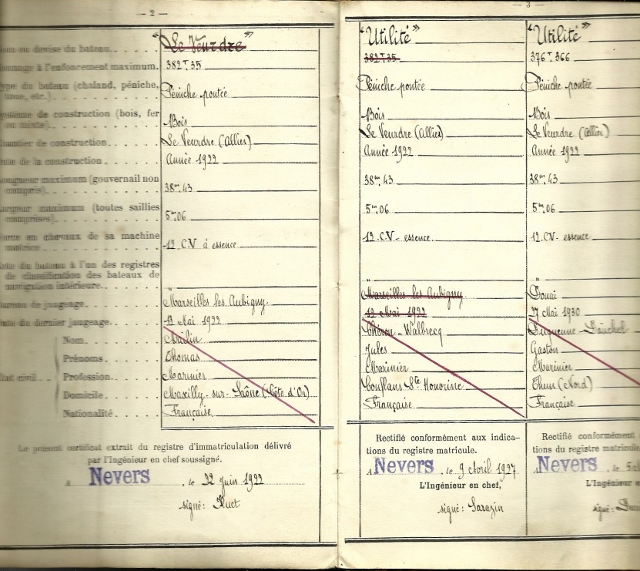 — 2 —
Nom ou devise du bateau
"Le Veurdre"
Tonnage à l'enfoncement maximum.
382T35
Type du bateau (chaland, péniche, toue, etc.)
Péniche pontée
Système de construction (bois, fer ou mixte)
Bois
Chantier de construction
Le Veurdre (Allier)
Date de la construction
Année 1922
Longueur maximum (gouvernail non compris)
38m,43
Largeur maximum (toutes saillies comprises)
5m06
Force en chevaux de sa machine motrice
12 C.V à essence
Date du bateau à l'un des registres de classification des bateaux de navigation intérieure
"
Bureau de jaugeage
Marseilles les Aubigny
Date du dernier jaugeage
12 Mai 1922
État civil
Nom
Prénoms
Thomas
Profession
Marinier
Domicile
Maxilly-sur-Saône (Côte d'Or)
Nationalité
Française
Le présent certificat extrait du registre d'immatriculation délivré
par l'Ingénieur en chef soussigné.
A Nevers, le 22 Juin 1922
signé: Huet
— 3 —
"Utilité"
382T35
Péniche pontée
Bois
Le Veurdre (Allier)
Année 1922
38m,43
5m06
12 CV- essence
"
Marseilles les Aubigny
12 Mai 1922
Jules
Marinier
Conflans Ste Honorine
Française
Rectifié conformément aux indica-
tions du registre matricule.
A Nevers le 9 Avril 1927
L'Ingénieur en chef,
signé: Sarazin
"Utilité"
376T,366
Péniche pontée
Bois
Le Veurdre (Allier)
Année 1922
38m,43
5m06
12 CV- essence
"
Douai
27 Mai 1930
Gaston
Marinier
Thun (Nord)
Française
Rectifié conformément
tions du registre matricule
A Nevers le
L'Ingénieur e
signé: